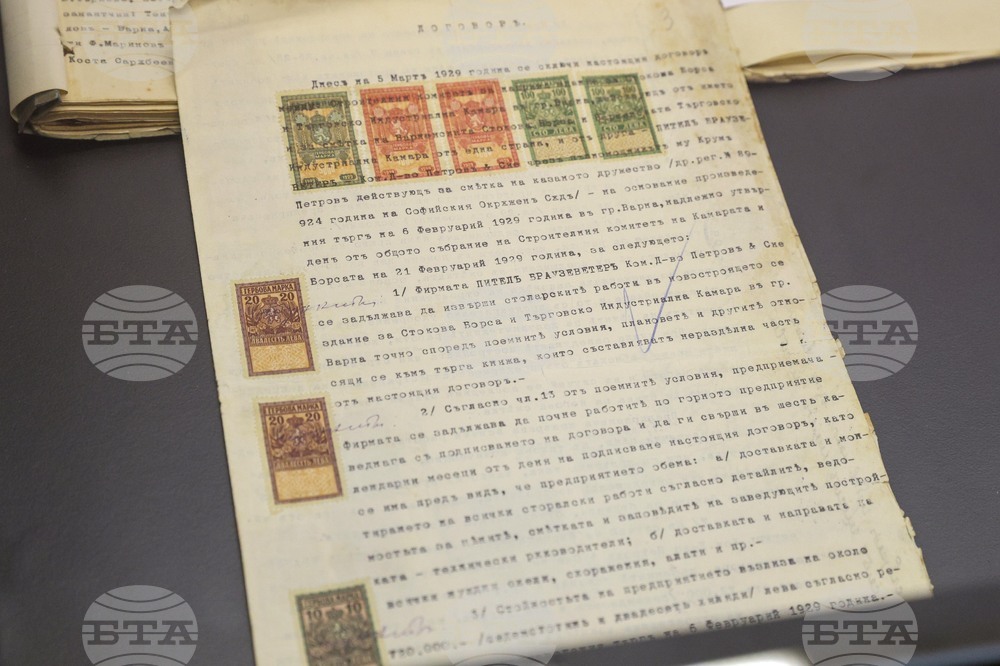 замлатчии: Тен
ловъ - Варна, А.
ки Ф.Мариновъ
Коста Сархбее
ДОГОВОРЪ.
3
Днесъ на 5 Мартъ 1929 година се сключи настоящия договоръ
между Строителния комитетъ за
Борса
и Търговско Индустриална Камара въ гр. Варна, отъ името
и за сметка на Варненската Стокова Борса и Търговско
Индустриална Камара отъ една страна, и отъ ПИТЕЛЪ БРАУЗЕ-
ВЕТЕРЪ Ком.Д-во Петровъ & Сие чрезъ му Крумъ
Петровъ действующъ за смѣтка на казаното дружество /др.рег.№
924 година на Софийския Окржженъ Сждъ/ - на основание произведе-
ния търгъ на 6 Февруарий 1929 година въ гр.Варна,надлежно утвър-
денъ отъ общото събрание на Строителния комитетъ на Камарата и
Борсата на 21 Февруарий 1929 година, за следующето:
1/ Фирмата ПИТЕЛЪ БРАУЗЕВЕТЕРЪ Ком.Д-во Петровъ & Сие
се задължава да извърши столарскитѣ работи въ новостроящето се
здание за Стокова Борса и Търговско Индустриална Камара въ гр.
Варна точно споредъ поемнитѣ условия, плановетѣ и другитѣ отно-
сящи се къмъ търга книжа, които съставляватъ нераздѣлна часть
отъ настоящия договоръ.-
2/ Съгласно чл.13 отъ поемнитѣ условия, предприемача -
фирмата се задължава да почне работитѣ по горното предприятие
веднага съ подписването на договора и да ги свърши въ шесть ка-
лендарни месеци отъ деня на подписване настоящия договоръ, като
се има предъ видъ, че предприятието обема: а/ доставката и мон-
тирането на всички столарски работи съгласно детайлитѣ, ведо-
мостата за цѣнитѣ, смѣтката и заповѣдитѣ на заведующитѣ построй-
ката - технически ржководители; б/ доставката и направата на
всички нуждни скели, скоражения, алати и пр.-
3/ Стойностьта на предприятието възлиза на около
720.000.- /седемстотинъ и двадесеть хиляди/ лева съгласно ре-
търгъ на 6 Февруарий 1929 година.-
СТО ЛЕВА
СТО ЛЕВА
ГЕРБОВА МАРКА
20 20
ДВАДЕСЕТЬ ЛЕВА
ГЕРБОВА МАРКА
20 20
ДВАДЕСЕТЬ ЛЕВА
10 10
БТА
БТА
БТА
БТА
БТА
БТА
БТА
БТА